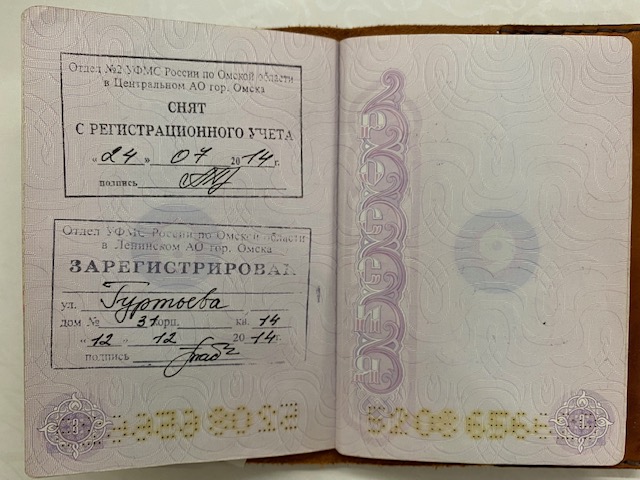 Отдел №2 УФМС России по Омской области
в Центральном АО гор. Омска
СНЯТ
С РЕГИСТРАЦИОННОГО УЧЕТА
"24" 04 2014 г.
подпись
Отдел УФМС России по Омской области
в Ленинском АО гор. Омска
ЗАРЕГИСТРИРОВАН
ул.
дом № 3 корп. кв. 14
"12" 12 2014 г.
подпись